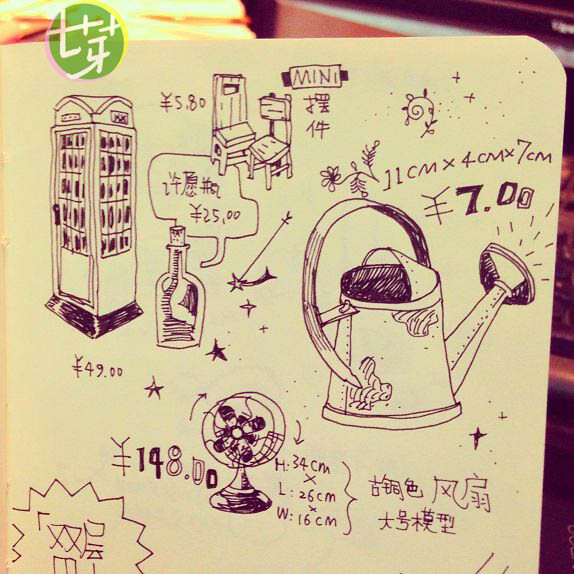 七芽
MINI
摆
件
¥5.80
许愿瓶
¥25.00
11CM×4CM×7CM
¥7.00
¥49.00
¥148.00
H:34CM
×
L:26CM
×
W:16CM
古铜色 风扇
大号模型
「双层